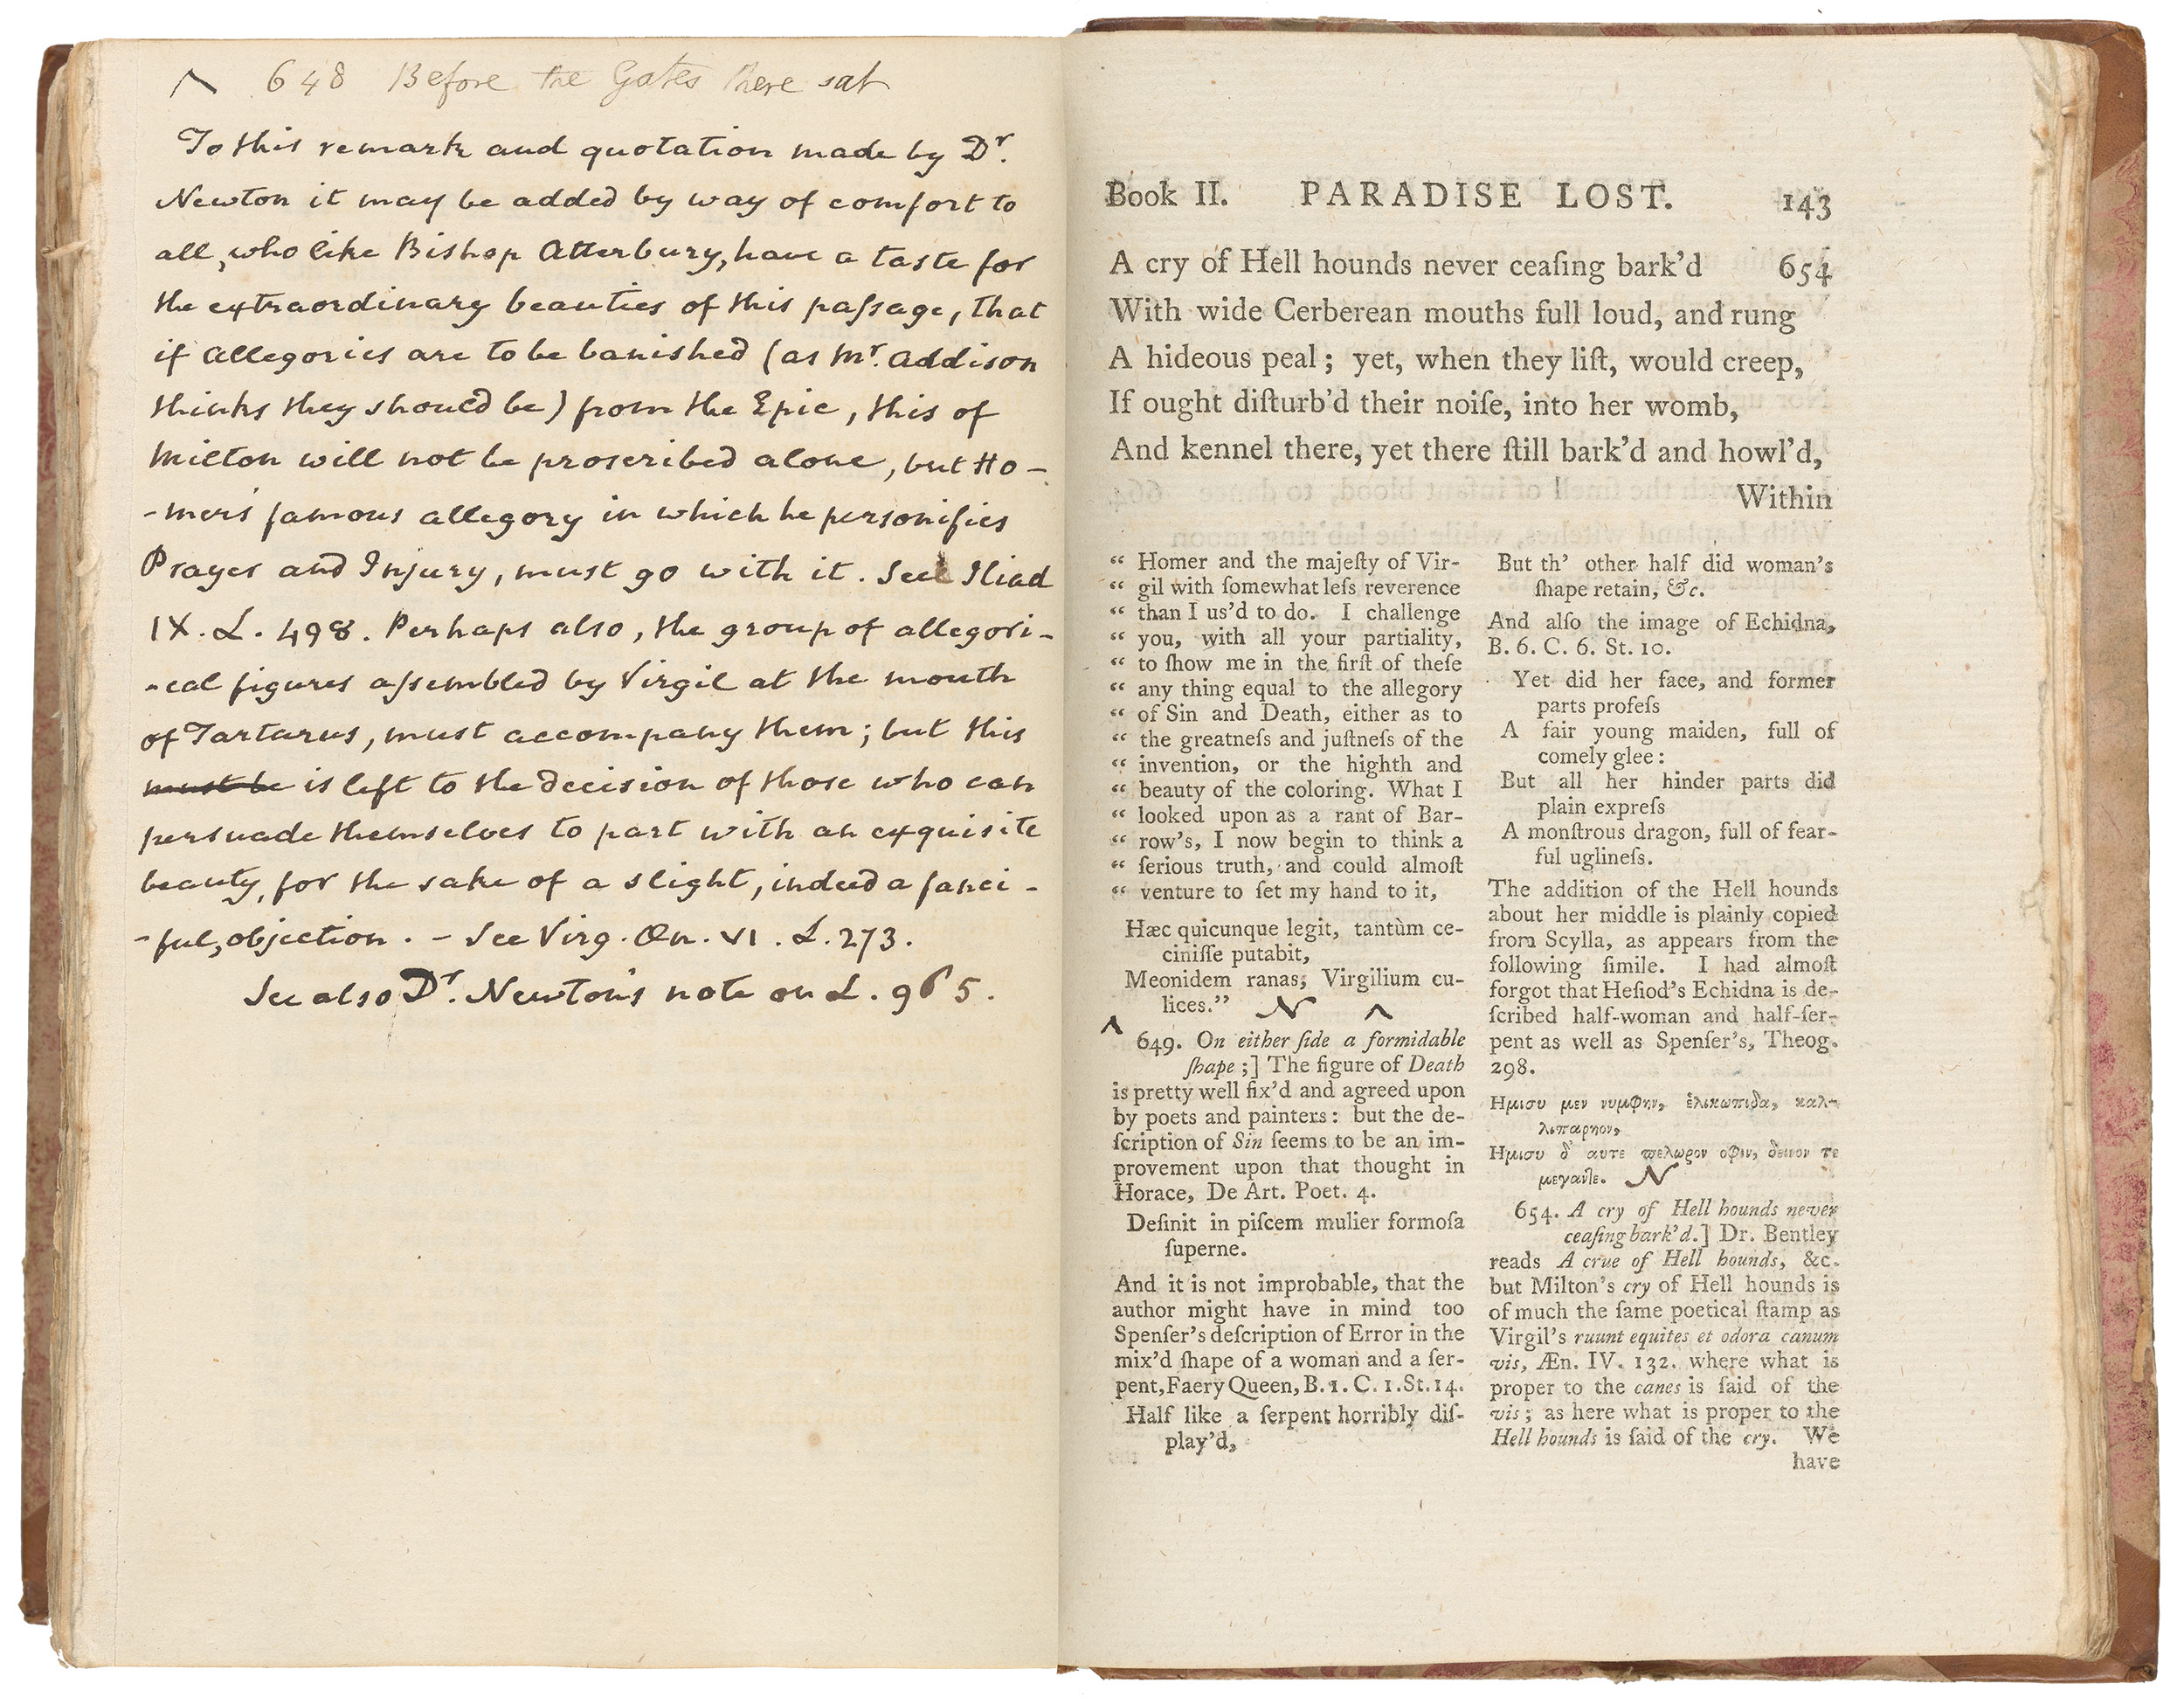 ^ 648 Before the Gates there sat
To this remark and quotation made by Dr.
Newton it may be added by way of comfort to
all, who like Bishop Atterbury, have a taste for
the extraordinary beauties of this paſsage, that
if Allegories are to be banished (as Mr. Addison
thinks they should be) from the Epic, this of
Milton will not be proscribed alone, but Ho-
-mers' famous allegory in which he personifies
Prayer and Injury, must go with it. See Iliad
IX. L. 498. Perhaps also, the group of allegori-
-cal figures aſsembled by Virgil at the mouth
of Tartarus, must accompany them; but this
must be is left to the decision of those who can
persuade themselves to part with an exquisite
beauty, for the sake of a slight, indeed a fanci-
-ful, objection. - See Virg. Æn. VI. L. 273.
See also Dr. Newton's note on L. 965.
Book II. PARADISE LOST. 143
A cry of Hell hounds never ceaſing bark'd 654
With wide Cerberean mouths full loud, and rung
A hideous peal; yet, when they liſt, would creep,
If ought diſturb'd their noiſe, into her womb,
And kennel there, yet there ſtill bark'd and howl'd,
Within
“ Homer and the majeſty of Vir-
“ gil with ſomewhat leſs reverence
“ than I us'd to do. I challenge
“ you, with all your partiality,
“ to ſhow me in the firſt of theſe
“ any thing equal to the allegory
“ of Sin and Death, either as to
“ the greatneſs and juſtneſs of the
“ invention, or the highth and
“ beauty of the coloring. What I
“ looked upon as a rant of Bar-
“ row's, I now begin to think a
“ ſerious truth, and could almoſt
“ venture to ſet my hand to it,
Hæc quicunque legit, tantùm ce-
ciniſſe putabit,
Meonidem ranas, Virgilium cu-
lices.” N ^
^ 649. On either ſide a formidable
ſhape;] The figure of Death
is pretty well fix'd and agreed upon
by poets and painters: but the de-
ſcription of Sin ſeems to be an im-
provement upon that thought in
Horace, De Art. Poet. 4.
Deſinit in piſcem mulier formoſa
ſuperne.
And it is not improbable, that the
author might have in mind too
Spenſer's deſcription of Error in the
mix'd ſhape of a woman and a ſer-
pent, Faery Queen, B. 1. C. 1. St. 14.
Half like a ſerpent horribly diſ-
play'd,
But th' other half did woman's
ſhape retain, &c.
And alſo the image of Echidna,
B. 6. C. 6. St. 10.
Yet did her face, and former
parts profeſs
A fair young maiden, full of
comely glee:
But all her hinder parts did
plain expreſs
A monſtrous dragon, full of fear-
ful uglineſs.
The addition of the Hell hounds
about her middle is plainly copied
from Scylla, as appears from the
following ſimile. I had almoſt
forgot that Heſiod's Echidna is de-
ſcribed half-woman and half-ſer-
pent as well as Spenſer's, Theog.
298.
Ημισυ μεν νυμφην, ἑλικωπιδα, καλ-
λιπαρηον,
Ημισυ δ' αυτε πελωρον οφιν, δεινον τε
μεγαντε. N
654. A cry of Hell hounds never
ceaſing bark'd.] Dr. Bentley
reads A crue of Hell hounds, &c.
but Milton's cry of Hell hounds is
of much the ſame poetical ſtamp as
Virgil's ruunt equites et odora canum
vis, Æn. IV. 132. where what is
proper to the canes is ſaid of the
vis; as here what is proper to the
Hell hounds is ſaid of the cry. We
have